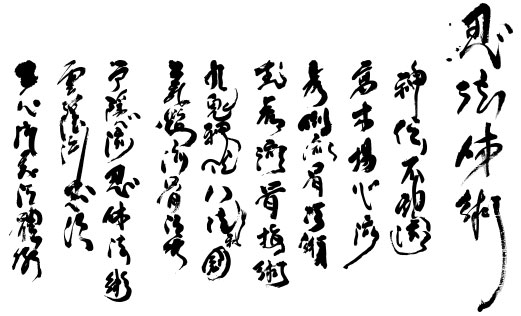 忍法体術
神伝不動流
高木揚心流
虎倒流骨法術
玉虎流骨指術
九鬼神伝八法秘
義鑑流骨法術
戸隠流忍体法術
雲隠流忍法
玉心流忍法體術